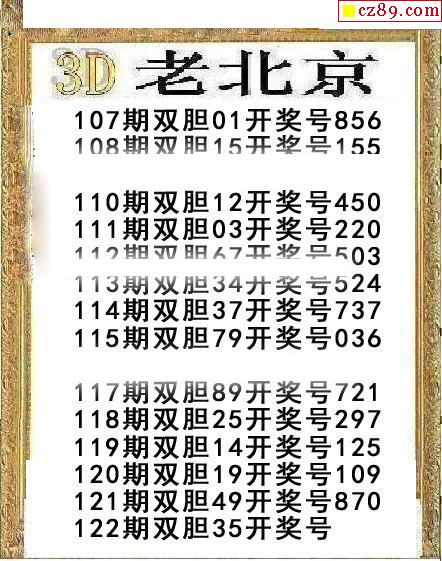 cz89.com
3D 老北京
107期双胆01开奖号856
108期双胆15开奖号155
110期双胆12开奖号450
111期双胆03开奖号220
112期双胆67开奖号503
113期双胆34开奖号524
114期双胆37开奖号737
115期双胆79开奖号036
117期双胆89开奖号721
118期双胆25开奖号297
119期双胆14开奖号125
120期双胆19开奖号109
121期双胆49开奖号870
122期双胆35开奖号